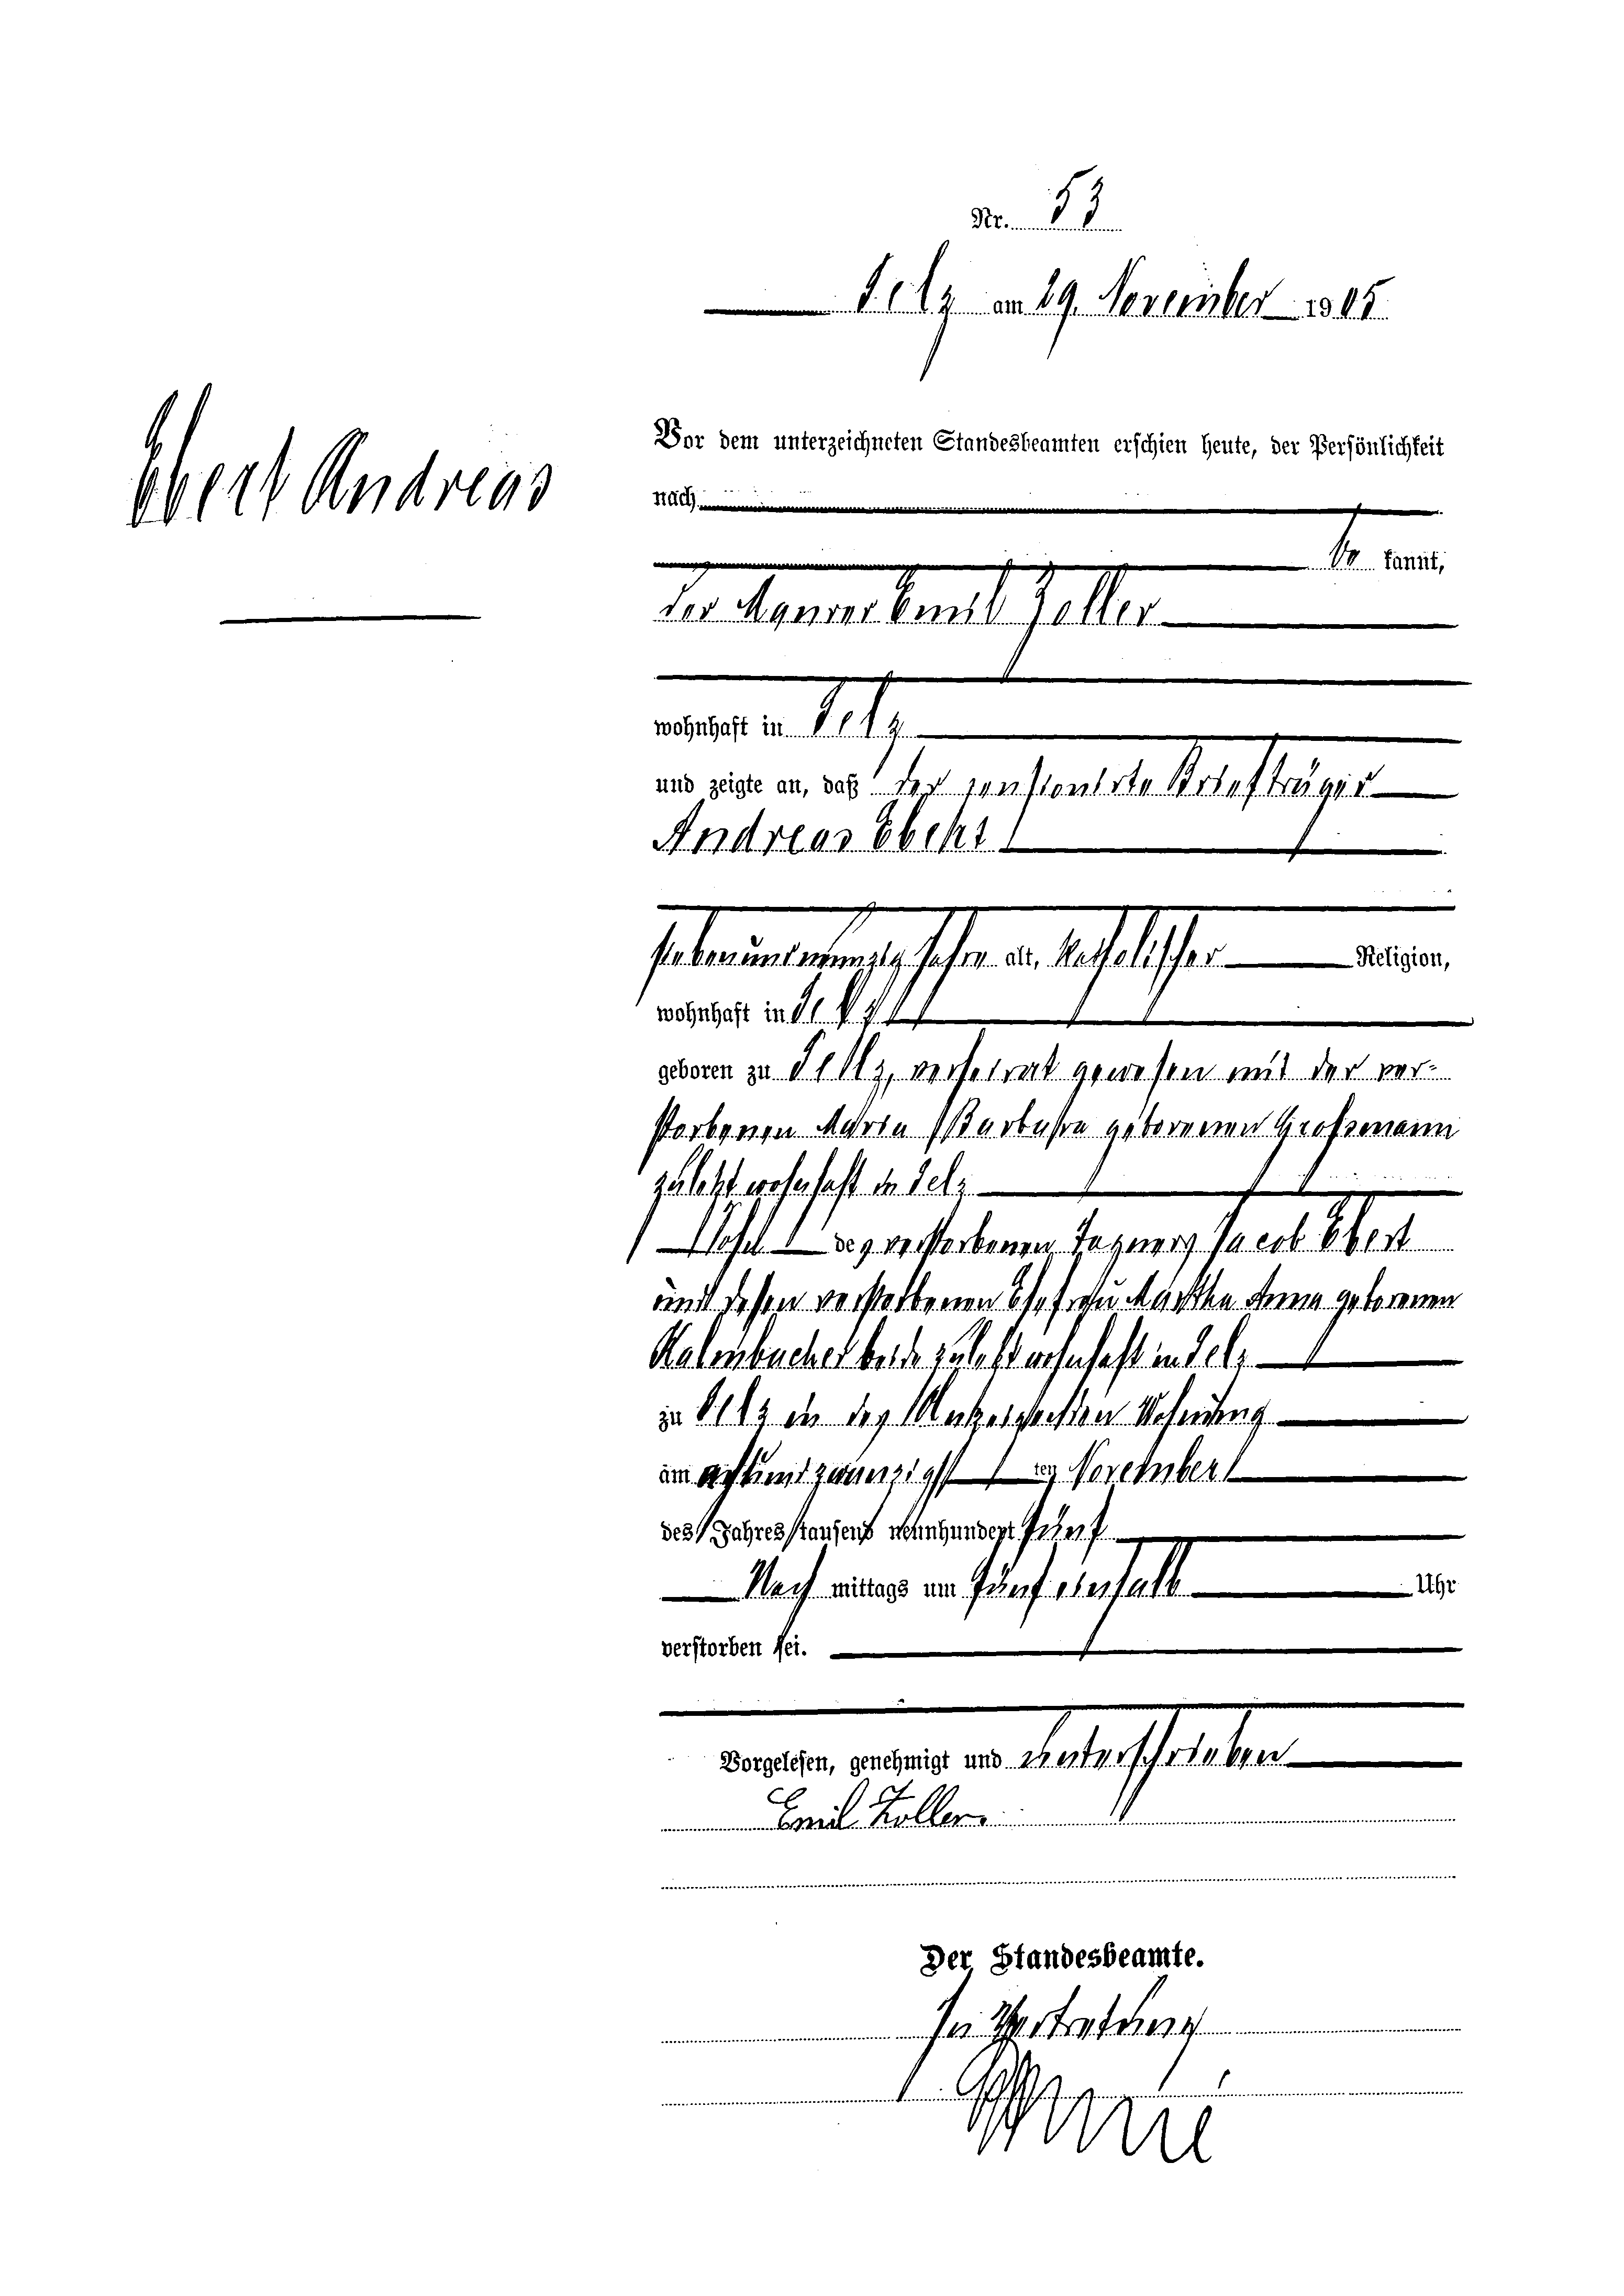 Nr. 53
Selz am 29. November 1905
Ebert Andreas
Vor dem unterzeichneten Standesbeamten erschien heute, der Persönlichkeit
nach
be kannt,
der Maurer Emil Zoller
wohnhaft in Selz
und zeigte an, daß der pensionirte Briefträger
Andreas Ebert
siebenundneunzig Jahre alt, katholischer Religion,
wohnhaft in Selz
geboren zu Selz, verheirat gewesen mit der ver-
storbenen Maria Barbara geborenen Großmann
zuletzt wohnhaft in Selz
Sohn des verstorbenen Tagners Jacob Ebert
und dessen verstorbenen Ehefrau Martha Anna geborenen
Kalmbacher beide zuletzt wohnhaft in Selz
zu Selz in des Wohnung
am achtundzwanzigst ten November
des Jahres tausend neunhundert fünf
Nach mittags um fünf einhalb Uhr
verstorben sei.
Vorgelesen, genehmigt und unterschrieben
Emil Zoller.
Der Standesbeamte.
In Vertretung